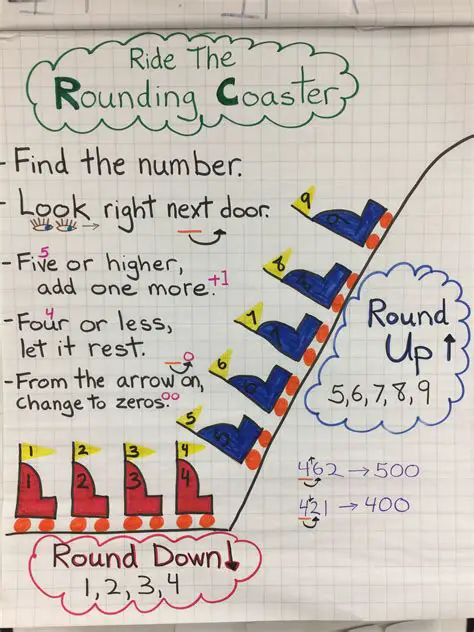 Ride The
Rounding Coaster
- Find the number.
- Look right next door.
- Five or higher,
5
add one more. +1
- Four or less,
4
let it rest.
0
- From the arrow on,
change to zeros. 00
9
8
8
7
7
6
6
5
5
Round
Up ↑
5,6,7,8,9
462 → 500
421 → 400
1 2 3 4
1 2 3 4
Round Down ↓
1, 2, 3, 4